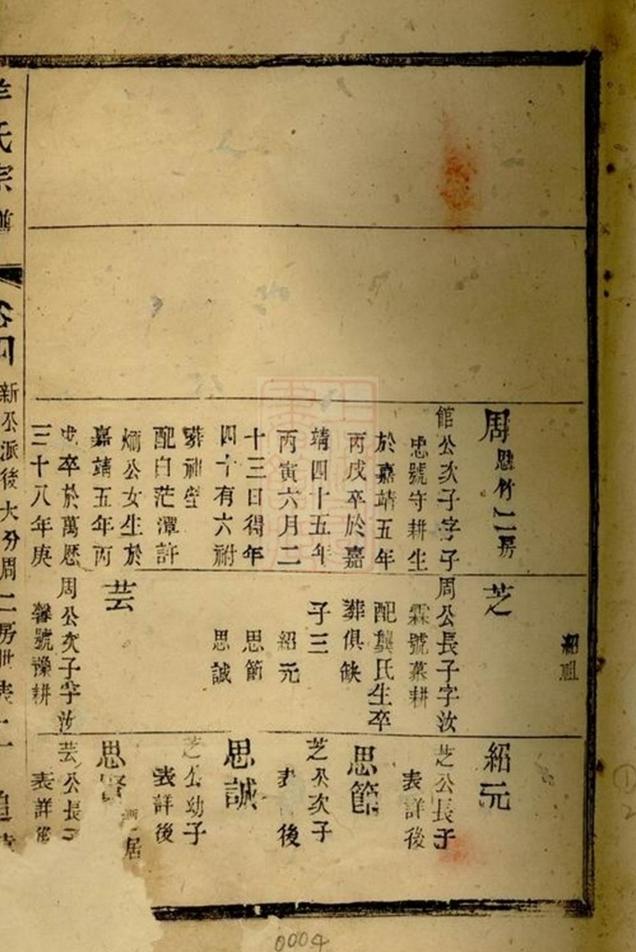 紹祖
周
館公次子字子
忠號守耕生
於嘉靖五年
丙戌卒於嘉
靖四十五年
丙寅六月二
十三日得年
四十有六祔
葬祖塋
配白茫潭許
炯公女生於
嘉靖五年丙
戌卒於萬歷
三十八年庚
芝
周公長子字汝
霖號菜耕
配龔氏生卒
葬俱缺
子三
紹元
思節
思誠
芸
周公次子字汝
馨號豫耕
紹元
芝公長子
表詳後
思節
芝公次子
表 後
思誠
芝公幼子
表詳後
思賢 居
芸公長子
表詳後
羊氏宗譜
卷四
新公派後大分周二房世表
0004